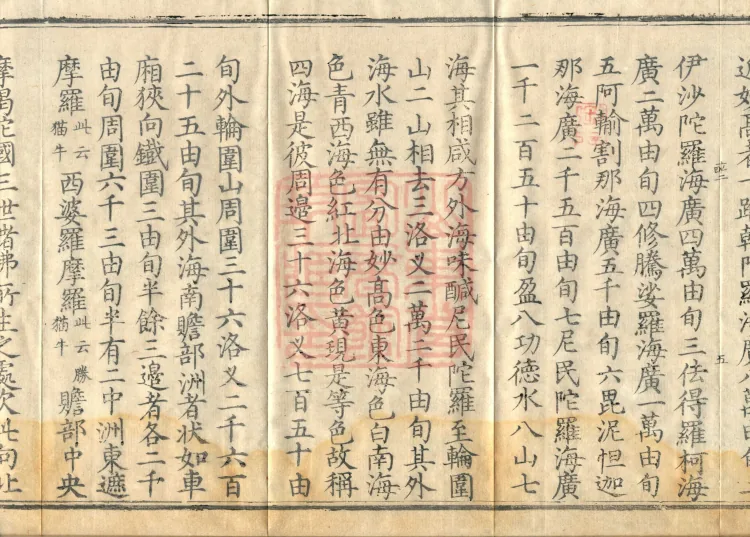 近妙高者一踰韓陀羅海廣八萬由旬二
五
伊沙陀羅海廣四萬由旬三佉得羅柯海
廣二萬由旬四修騰娑羅海廣一萬由旬
五阿輸割那海廣五千由旬六毘泥怛迦
那海廣二千五百由旬七尼民陀羅海廣
一千二百五十由旬盈八功德水八山七
海其相咸方外海味醎尼民陀羅至輪圍
山二山相去三洛义二萬二千由旬其外
海水雖無有分由妙高色東海色白南海
色青西海色紅北海色黃現是等色故稱
四海是彼周邊三十六洛义七百五十由
旬外輪圍山周圍三十六洛义二千六百
二十五由旬其外海南贍部洲者狀如車
廂狹向鐵圍三由旬半餘三邊者各二千
由旬周圍六千三由旬半有二中洲東遮
摩羅此云猫牛西婆羅摩羅此云勝猫牛贍部中央
摩竭陀國三世諸佛所生之處次此向北